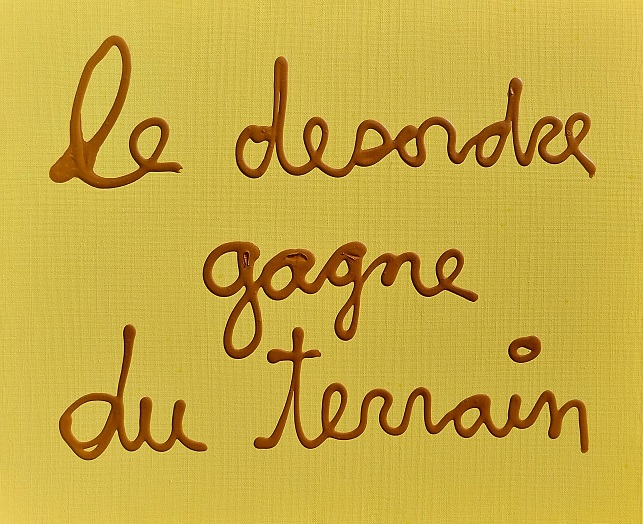 le desordre
gagne
du terrain